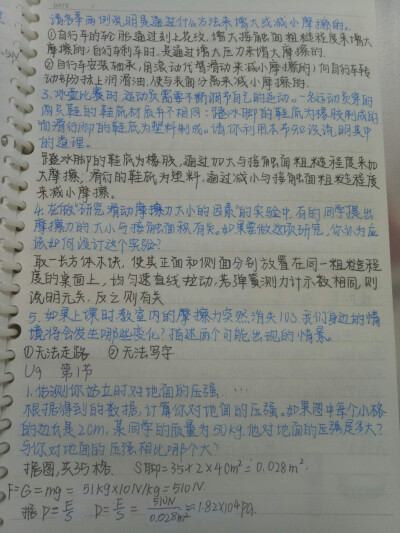 请各举两例说明是通过什么方法来增大或减小摩擦的。
①自行车的轮胎通过刻上花纹,增大接触面粗糙程度来增大
摩擦的;自行车刹车时,是通过增大压力来增大摩擦的。
②自行车安装轴承,用滚动代替滑动来减小摩擦的;向自行车转
动部分加上润滑油,使与表面分离来减小摩擦的。
3.冰壶比赛时,运动员需要不断调节自己的运动。一名运动员穿的
两只鞋的鞋底材质并不相同:蹬冰脚的鞋底为橡胶制成的
而滑行脚的鞋底为塑料制成。请你利用本节知识说明其中
的道理。
蹬冰脚的鞋底为橡胶,通过加大与接触面粗糙程度来加
大摩擦;滑行的鞋底为塑料,通过减小与接触面粗糙程度
来减小摩擦。
4.在做"研究滑动摩擦力大小的因素"的实验中,有的同学提出
摩擦力的大小与接触面积有关。如果要做这项研究,你认为应
该如何设计这个实验?
取一长方体木块,使其正面和侧面分别放置在同一粗糙程
度的桌面上,均匀速直线拉动,若弹簧测力计示数相同,则
说明无关,反之则有关
5.如果上课时,教室内的摩擦力突然消失10s,我们身边的情
境将会发生哪些变化?描述两个可能出现的情景。
①无法走路 ②无法写字
U9 第1节
1.估测你站立时对地面的压强.…
根据得到的数据,计算你对地面的压强。如果图中每个小格
的边长是2cm,某同学的质量为50kg.他对地面的压强是多大?
与你对地面的压强相比哪个大?
据图,共35格. S脚=35×2×4cm²=0.028m².
F=G=mg=51kg×10N/kg=510N.
据P=F/S P=F/S=510N/0.028m²≈1.82×104Pa.